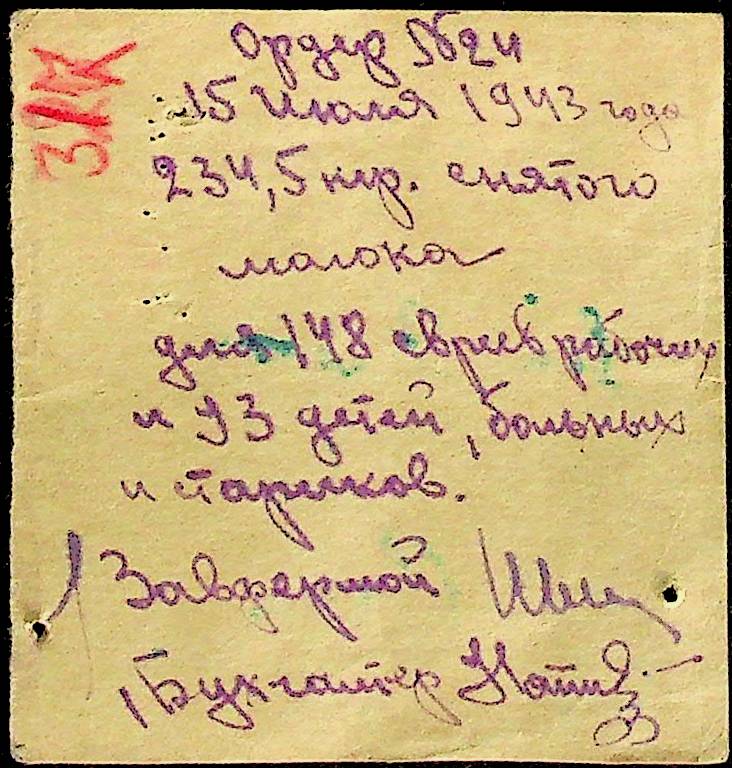 Ордер №24
15 Июля 1943 года
234,5 кгр. снятого
молока
для 148 евреев рабочих
и 93 детей, больных
и стариков.
Завфермой
Бухгалтер